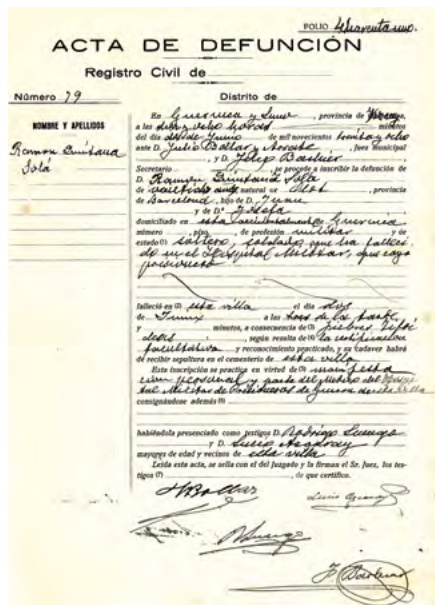 FOLIO
ACTA DE DEFUNCIÓN
Registro Civil de
Número 79
Distrito de
NOMBRE Y APELLIDOS
Ramon Quintana
Solá
En Guernica y Luno, provincia de
a las diez y ocho horas minutos
del día dos de Junio de mil novecientos treinta y ocho
ante D. Julio Bollar y, Juez municipal
, y D. Felip
Secretario, se procede a inscribir la defunción de
D. Ramon Quintana Solá
de natural de Olot, provincia
de Barcelona, hijo de D. Juan
y de D.ª Josefa
domiciliado en esta accidentalmente Guernica
número, piso, de profesión militar y de
estado (1) soltero, soldado, que ha falleci
do en el Hospital Militar, cuyo
falleció en (2) esta villa el día dos
de Junio a las tres de la tarde
y minutos, a consecuencia de (3) fiebres tifoi
deas, según resulta de (4) la certificación
facultativa y reconocimiento practicado, y su cadáver habrá
de recibir sepultura en el cementerio de esta villa
Esta inscripción se practica en virtud de (5) manifesta
ción personal y parte del Médico del Hospi
tal Militar de Prisioneros de Guerra de esta villa
consignándose además (6)
habiéndola presenciado como testigos D. Rodrigo Luengo
y D. Lucio
mayores de edad y vecinos de esta villa
Leída esta acta, se sella con el del Juzgado y la firman el Sr. Juez, los tes-
tigos (7), de que certifico.